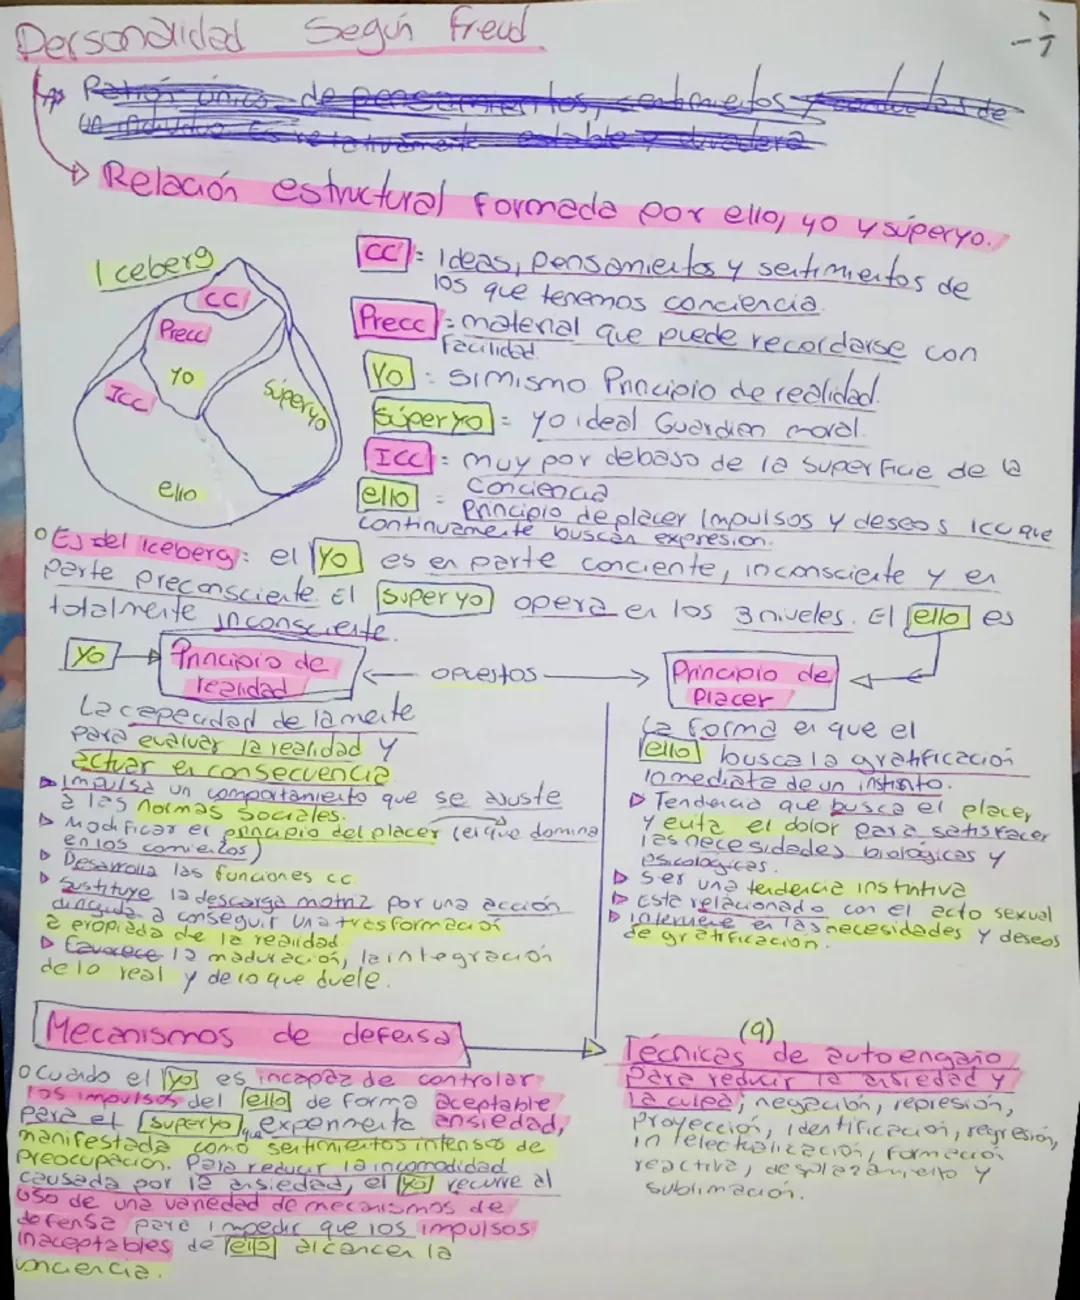 Personalidad Según Freud.
Patrón único de pensamientos, sentimientos y conductas de
un individuo Es relativamente estable y duradera
Relación estructural formada por ello, yo y súperyo.
Iceberg
CC
Precc
Yo
Icc
Súperyo
ello
CC : Ideas, pensamientos y sentimientos de
los que tenemos conciencia.
Precc : material que puede recordarse con
facilidad.
Yo : SI mismo Principio de realidad.
Súperyo = yo ideal Guardian moral.
ICC : muy por debaso de la superficie de la
conciencia
ello = Principio de placer Impulsos y deseos icc que
continuamente buscan expresion.
Es del Iceberg: el Yo es en parte conciente, inconsciente y en
parte preconsciente. El Superyo opera en los 3 niveles. El ello es
totalmente inconsciente.
Yo
Principio de
realidad
opuestos
Principio de
Placer
La capacidad de la mente
para evaluar la realidad y
actuar en consecuencia
Impulsa un comportamiento que se ajuste
a las normas sociales.
Modificar el principio del placer (el que domina
en los comienzos)
Desarrolla las funciones cc.
Sustituye la descarga motriz por una acción
dirigida a conseguir una trasformación
apropiada de la realidad.
Favorece la maduración, la integración
de lo real y de lo que duele.
La forma en que el
ello busca la gratificación
inmediata de un instinto.
Tendencia que busca el placer,
y evita el dolor para satisfacer
las necesidades biológicas y
psicologicas.
Ser una tendencia instintiva
Este relacionado con el acto sexual
interviene en las necesidades y deseos
de gratificacion.
Mecanismos de defensa
Cuando el yo es incapaz de controlar
los impulsos del ello de forma aceptable
para el superyo, experimenta ansiedad,
que
manifestada como sentimientos intensos de
preocupación. Para reducir la incomodidad
causada por la ansiedad, el yo recurre al
uso de una variedad de mecanismos de
defensa para impedir que los impulsos
inaceptables de ello alcancen la
conciencia.
(9)
Tecnicas de autoengaño
para reducir la ansiedad y
la culpa; negación, represión,
proyección, identificación, regresión,
intelectualización, formación
reactiva, desplazamiento y
sublimación.